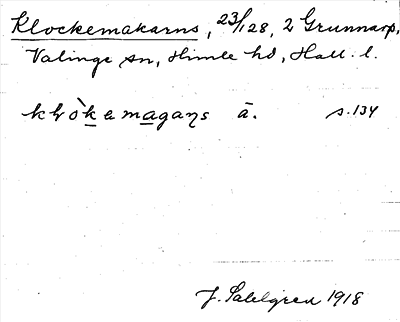 Klockemakarns, 23/128, 2 Grunnarp,
Valinge sn, Himle hd, Hall. l.
s. 134
J. Sahlgren 1918